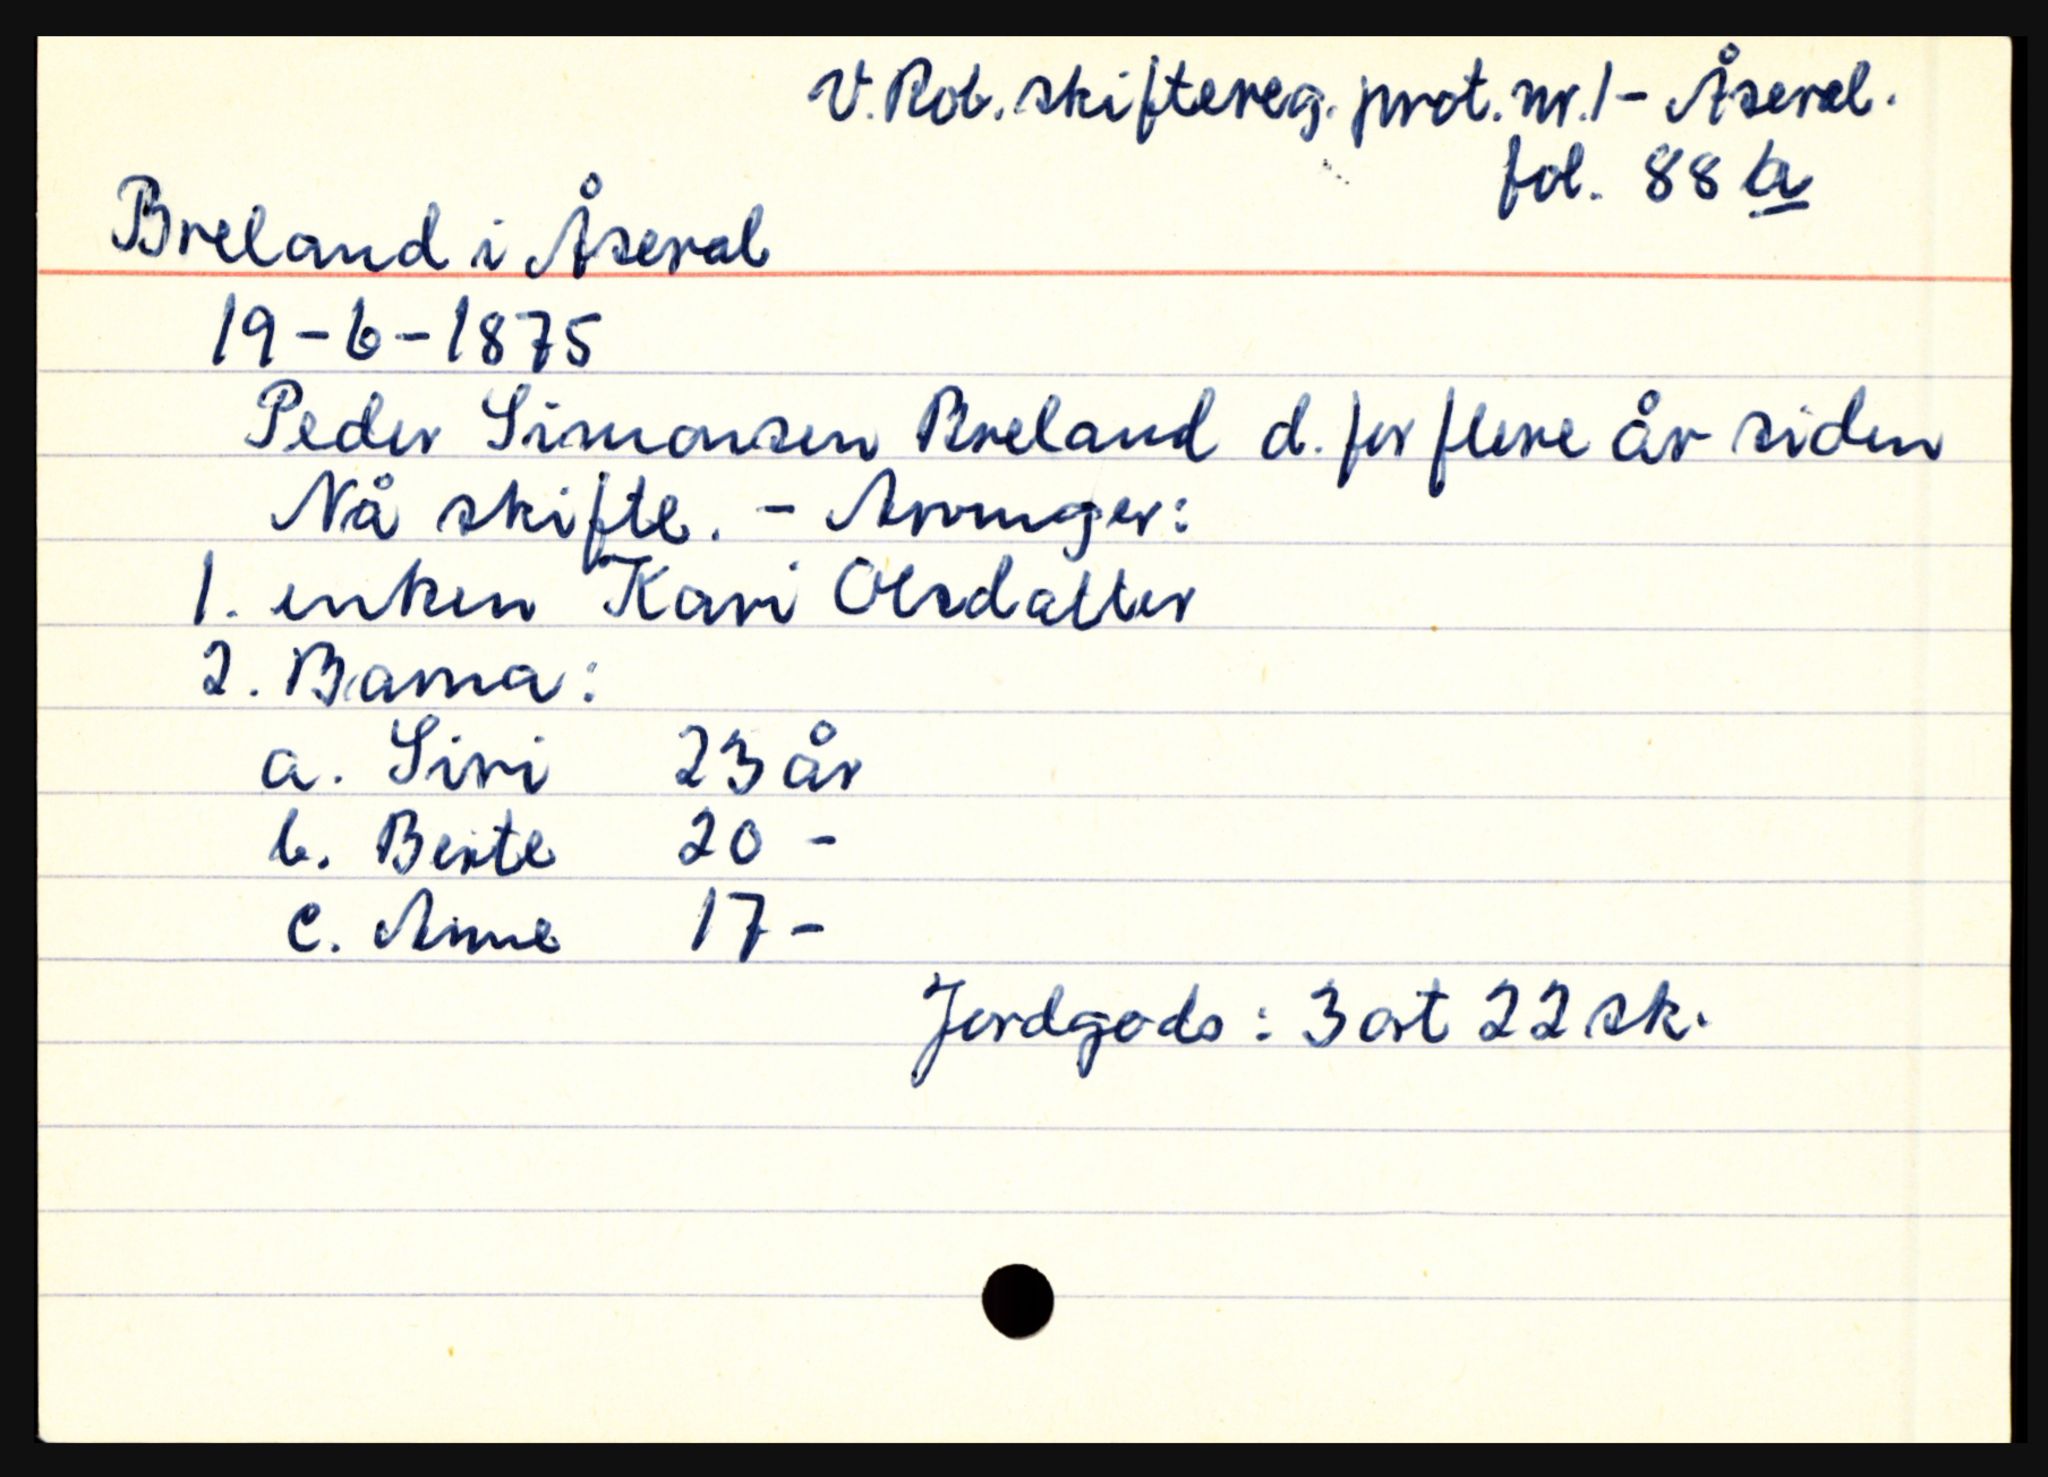 V. Rob. skiftereg. prot. nr. 1 - Åseral.
fol. 88 a
Breland i Åseral
19-6-1875
Peder Simonsen Breland d. for flere år siden
Nå skifte. - Arvinger:
1. enken Kari Olsdatter
2. Barna:
a. Siri 23 år
b. Berte 20 -
c. Anne 17 -
Jordgods: 3 ort 22 sk.